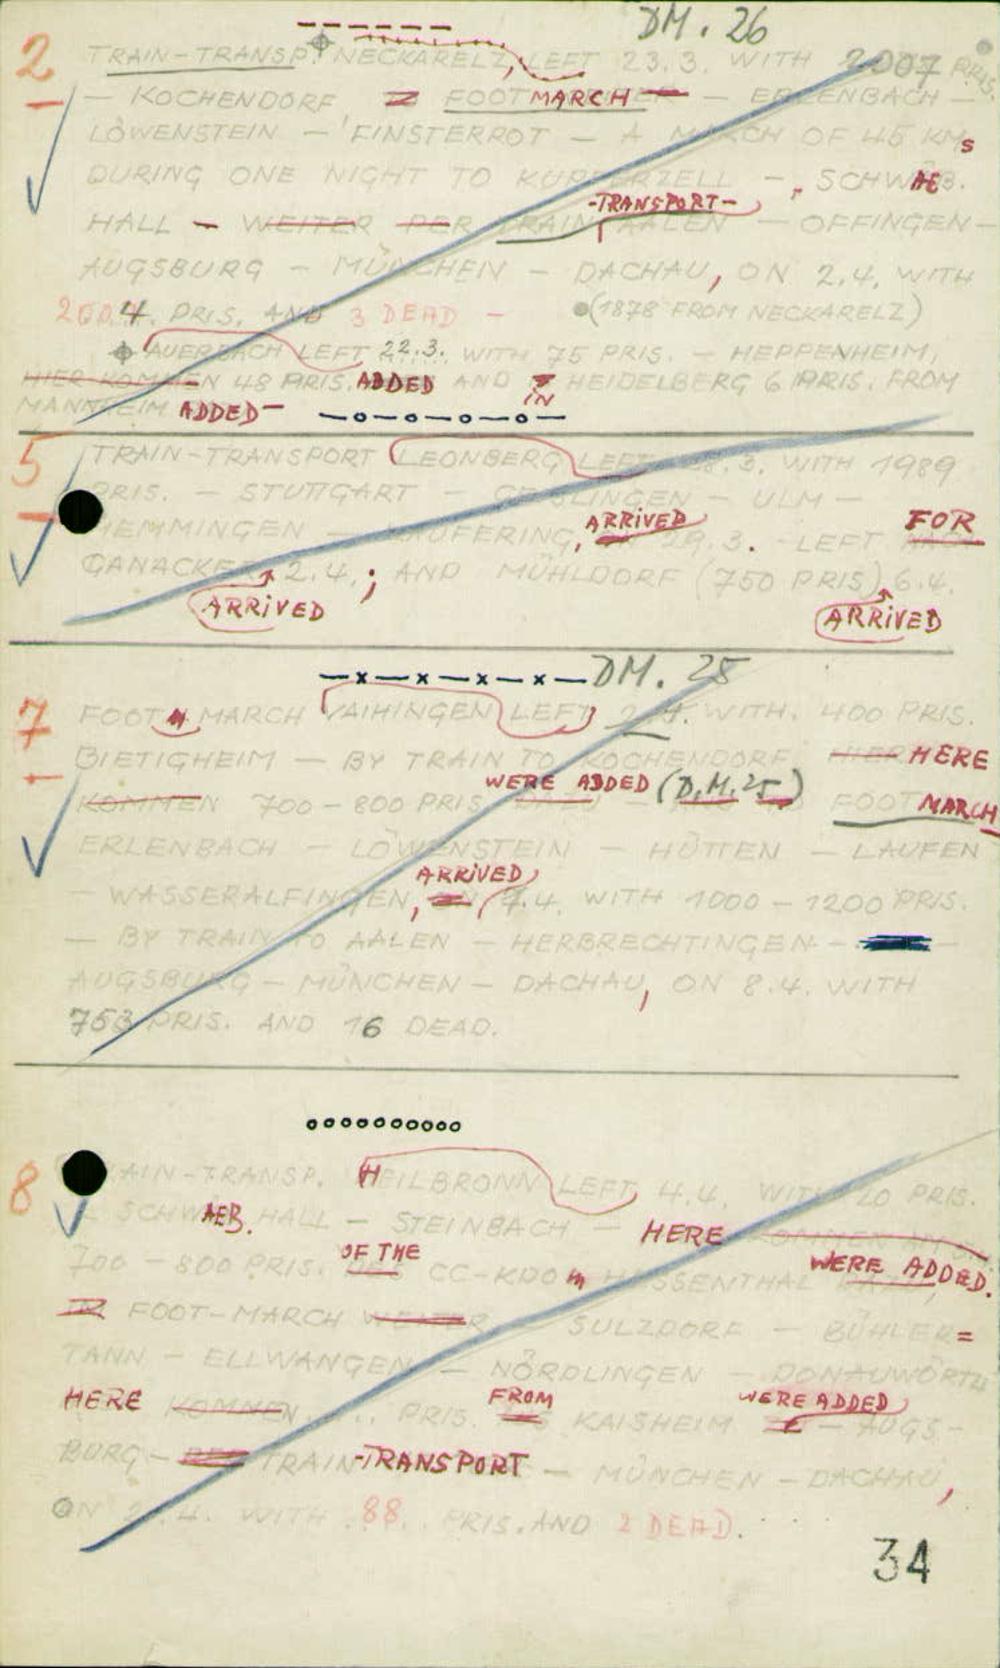 DM. 26
2 TRAIN-TRANSP. NECKARELZ, LEFT 23.3. WITH 2007 PRIS.
— KOCHENDORF FOOT MARCH — ERLENBACH —
LÖWENSTEIN — FINSTERROT — A MARCH OF 45 KMs
DURING ONE NIGHT TO KUPFERZELL —, SCHWAEB.
-TRANSPORT-
HALL — WEITER PER TRAIN AALEN — OFFINGEN —
AUGSBURG — MÜNCHEN — DACHAU, ON 2.4. WITH
4. PRIS. AND 3 DEAD — (1878 FROM NECKARELZ)
AUERBACH LEFT 22.3. WITH 75 PRIS. — HEPPENHEIM,
HIER KOMMEN 48 PRIS. ADDED AND IN HEIDELBERG 6 PRIS. FROM
MANNHEIM ADDED —
5 TRAIN-TRANSPORT LEONBERG LEFT 28.3. WITH 1989
PRIS. — STUTTGART — GEISLINGEN — ULM —
MEMMINGEN — KAUFERING, ARRIVED 29.3. LEFT FOR
GANACKER 2.4.; AND MÜHLDORF (750 PRIS) 6.4.
ARRIVED ARRIVED
DM. 25
7 FOOT MARCH VAIHINGEN LEFT 2.4. WITH. 400 PRIS.
BIETIGHEIM — BY TRAIN TO KOCHENDORF HIER HERE
WERE ADDED (D.M.25)
KOMMEN 700-800 PRIS FOOT MARCH
ERLENBACH — LÖWENSTEIN — HÜTTEN — LAUFEN
ARRIVED
— WASSERALFINGEN, ON 7.4. WITH 1000-1200 PRIS.
— BY TRAIN TO AALEN — HERBRECHTINGEN —
AUGSBURG — MÜNCHEN — DACHAU, ON 8.4. WITH
753 PRIS. AND 16 DEAD.
8 TRAIN-TRANSP. HEILBRONN LEFT 4.4. WITH PRIS.
SCHWAEB. HALL — STEINBACH — HERE KOMMEN
OF THE WERE ADDED.
700-800 PRIS. CC-KDO HESSENTHAL
FOOT-MARCH WEITER SULZDORF — BÜHLER=
TANN — ELLWANGEN — NÖRDLINGEN — DONAUWÖRTH
HERE KOMMEN ... PRIS. FROM KAISHEIM WERE ADDED — AUGS-
BURG — PER TRAIN-TRANSPORT — MÜNCHEN — DACHAU,
ON WITH 88 PRIS. AND 2 DEAD.
34